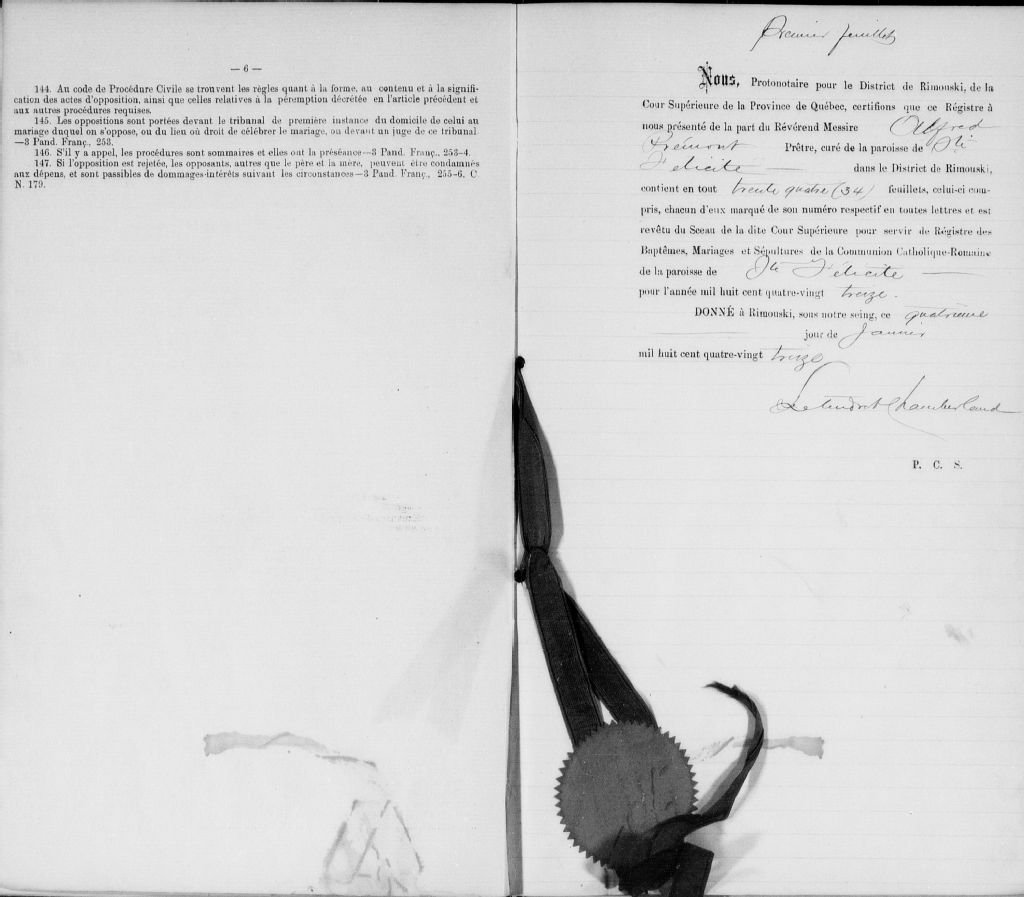 — 6 —
144. Au code de Procédure Civile se trouvent les règles quant à la forme, au contenu et à la signifi-
cation des actes d'opposition, ainsi que celles relatives à la péremption décrétée en l'article précédent et
aux autres procédures requises.
145. Les oppositions sont portées devant le tribunal de première instance du domicile de celui au
mariage duquel on s'oppose, ou du lieu où droit de célébrer le mariage, ou devant un juge de ce tribunal
—3 Pand. Franç., 253.
146. S'il y a appel, les procédures sont sommaires et elles ont la préséance—3 Pand. Franç., 253-4.
147. Si l'opposition est rejetée, les opposants, autres que le père et la mère, peuvent être condamnés
aux dépens, et sont passibles de dommages-intérêts suivant les circonstances—3 Pand. Franç., 255-6, C
N. 179.
Premier feuillet
Nous, Protonotaire pour le District de Rimouski, de la
Cour Supérieure de la Province de Québec, certifions que ce Régistre à
nous présenté de la part du Révérend Messire Alfred
Prémont Prêtre, curé de la paroisse de Ste
Félicité — dans le District de Rimouski,
contient en tout trente quatre (34) feuillets, celui-ci com-
pris, chacun d'eux marqué de son numéro respectif en toutes lettres et est
revêtu du Sceau de la dite Cour Supérieure pour servir de Régistre des
Baptêmes, Mariages et Sépultures de la Communion Catholique-Romaine
de la paroisse de Ste Félicité —
pour l'année mil huit cent quatre-vingt treize.
DONNÉ à Rimouski, sous notre seing, ce quatrième
jour de Janvier
mil huit cent quatre-vingt treize
Letendre & Chamberland
P. C. S.